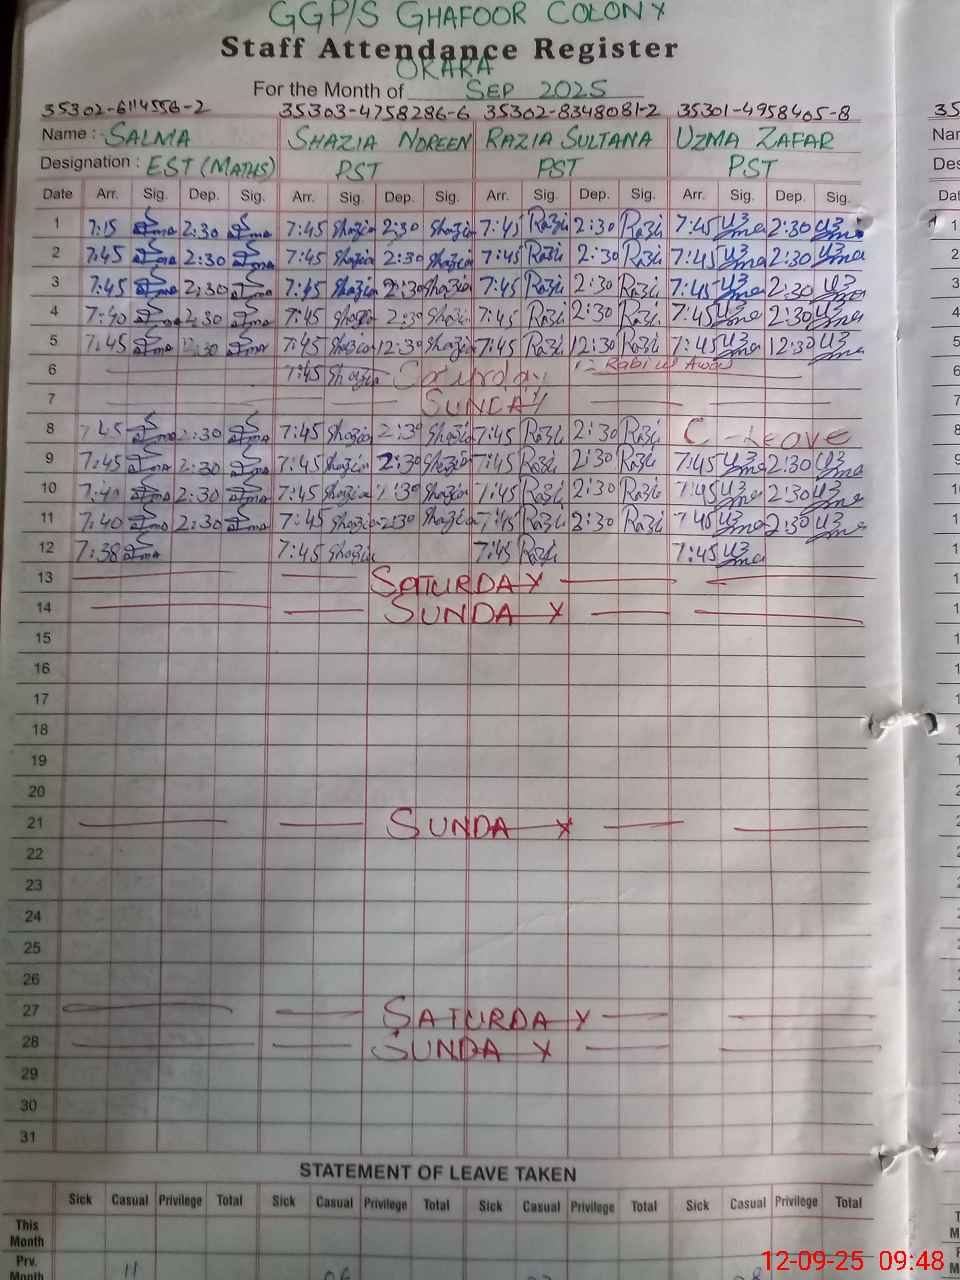 GGP/S GHAFOOR COLONY
Staff Attendance Register
OKARA
For the Month of SEP 2025
35302-6114556-2 35303-4758286-6 35302-8348081-2 35301-4958405-8
Name : SALMA SHAZIA NOREEN RAZIA SULTANA UZMA ZAFAR
Designation : EST (MATHS) PST PST PST
Date Arr. Sig. Dep. Sig. Arr. Sig. Dep. Sig. Arr. Sig. Dep. Sig. Arr. Sig. Dep. Sig.
1 7:15 2:30 7:45 Shazia 2:30 Shazia 7:45 Razi 2:30 Razi 7:45 Uzma 2:30 Uzma
2 7:45 2:30 7:45 Shazia 2:30 Shazia 7:45 Razi 2:30 Razi 7:45 Uzma 2:30 Uzma
3 7:45 2:30 7:45 Shazia 2:30 Shazia 7:45 Razi 2:30 Razi 7:45 Uzma 2:30 Uzma
4 2:30 7:45 Shazia 2:30 Shazia 7:45 Razi 2:30 Razi 7:45 Uzma 2:30 Uzma
5 7:45 12:30 7:45 Shazia 12:30 Shazia 7:45 Razi 12:30 Razi 7:45 Uzma 12:30 Uzma
6 7:45 Shazia Rabi ul Awal
7 SUNDAY
8 7:45 2:30 7:45 Shazia 2:30 Shazia 7:45 Razi 2:30 Razi C - Leave
9 7:45 2:30 7:45 Shazia 2:30 Shazia 7:45 Razi 2:30 Razi 7:45 Uzma 2:30 Uzma
10 7:40 2:30 7:45 Shazia Shazia 7:45 Razi 2:30 Razi 7:45 Uzma 2:30 Uzma
11 7:40 2:30 7:45 Shazia 2:30 Shazia 7:45 Razi 2:30 Razi 7:45 Uzma 2:30 Uzma
12 7:38 7:45 Shazia 7:45 Razi 7:45 Uzma
13 SATURDAY
14 SUNDAY
15
16
17
18
19
20
21 SUNDAY
22
23
24
25
26
27 SATURDAY
28 SUNDAY
29
30
31
STATEMENT OF LEAVE TAKEN
Sick Casual Privilege Total Sick Casual Privilege Total Sick Casual Privilege Total Sick Casual Privilege Total
This Month
Prv. Month 11
12-09-25 09:48